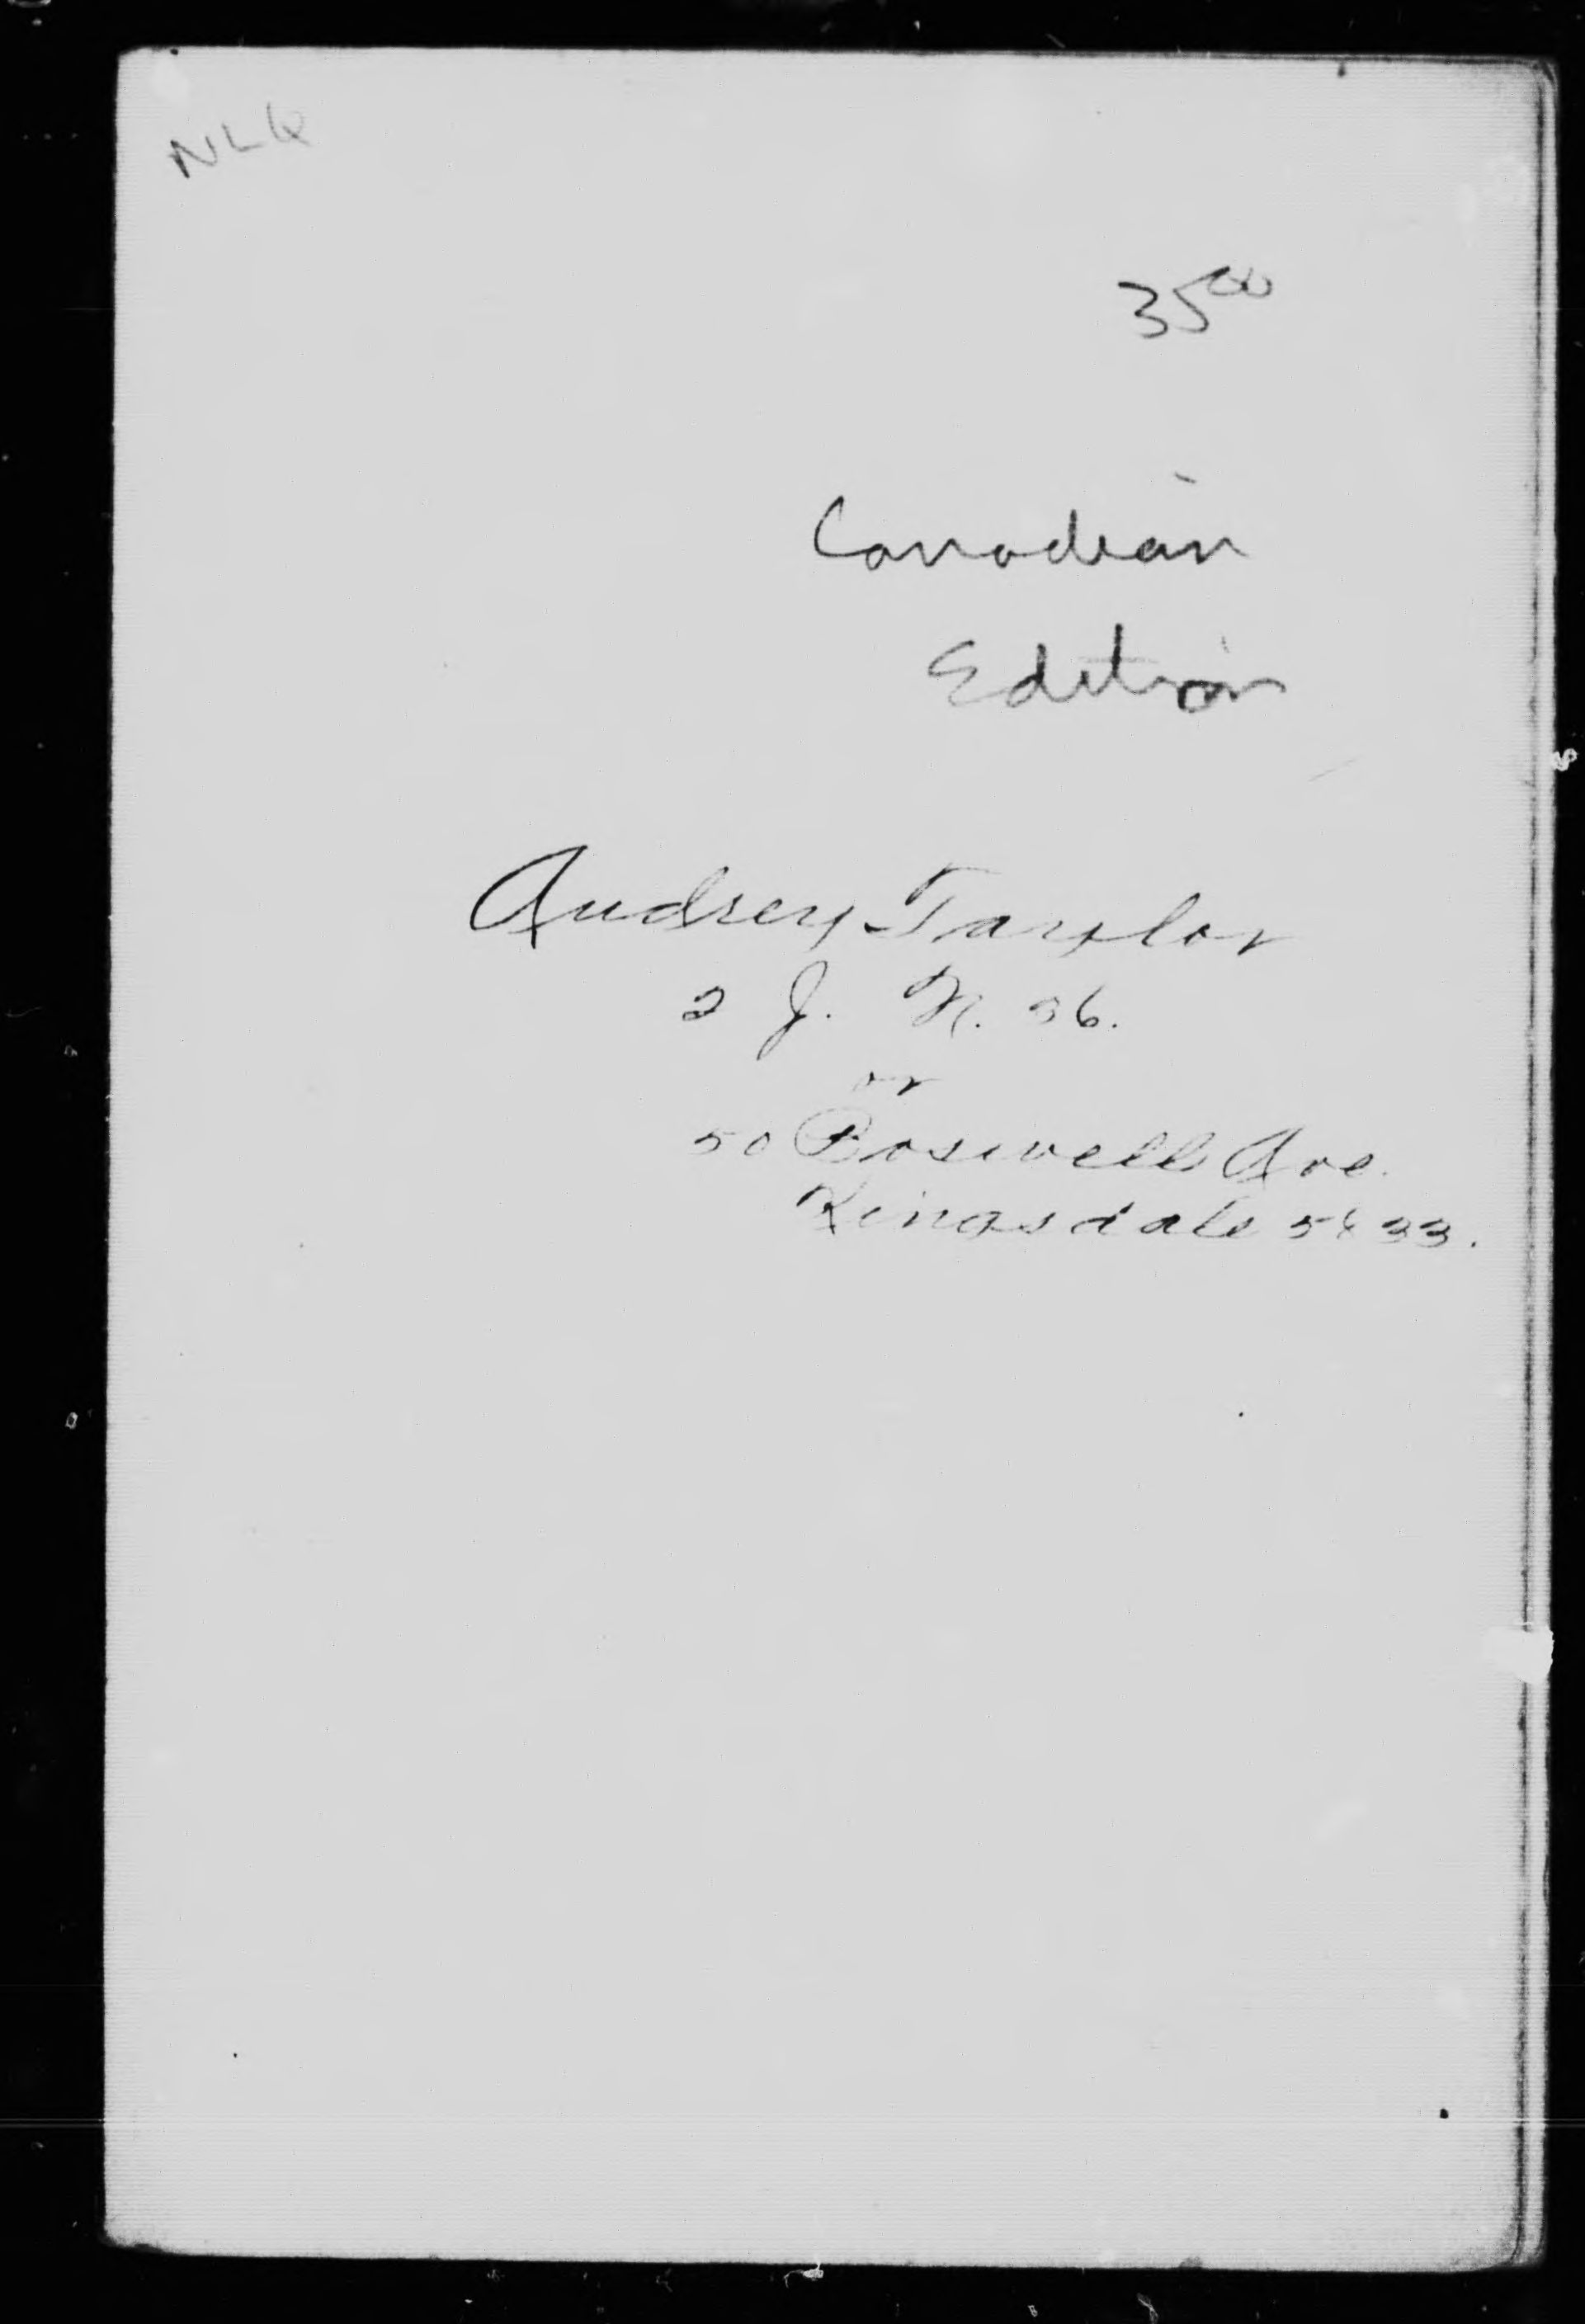 NLQ
35 00
Canadian
Edition
Audrey Taylor
2 J. N. 36.
or
50 Boswell Ave.
Kingsdale 5833.